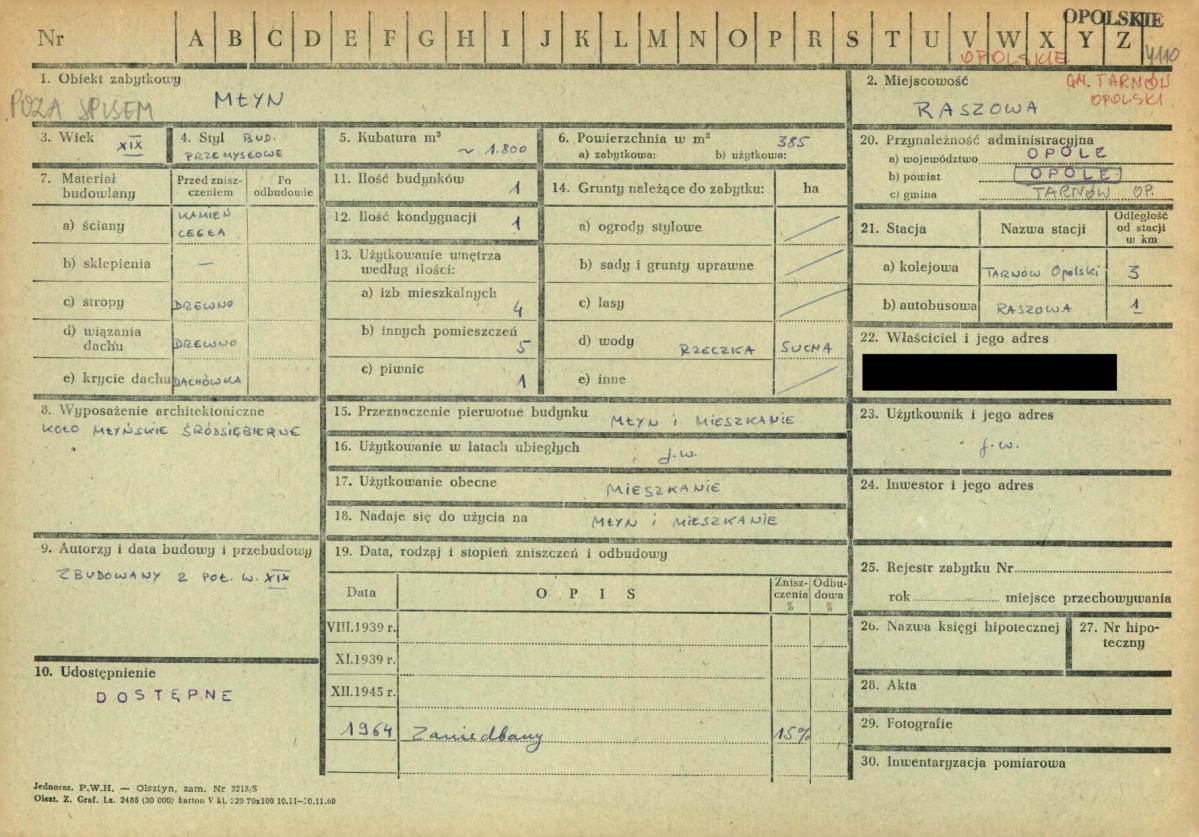 OPOLSKIE
Nr A B C D E F G H I J K L M N O P R S T U V W X Y Z
OPOLSKIE
4110
1. Obiekt zabytkowy
POZA SPISEM
MŁYN
2. Miejscowość
GM. TARNÓW
OPOLSKI
RASZOWA
3. Wiek XIX
4. Styl BUD.
PRZEMYSŁOWE
5. Kubatura m³
~ 1.800
6. Powierzchnia w m² 385
a) zabytkowa: b) użytkowa:
20. Przynależność administracyjna
a) województwo OPOLE
b) powiat OPOLE
c) gmina TARNÓW OP.
7. Materiał budowlany
Przed zniszczeniem
Po odbudowie
a) ściany KAMIEŃ
CEGŁA
b) sklepienia —
c) stropy DREWNO
d) wiązania dachu DREWNO
e) krycie dachu DACHÓWKA
11. Ilość budynków 1
12. Ilość kondygnacji 1
13. Użytkowanie wnętrza
według ilości:
a) izb mieszkalnych 4
b) innych pomieszczeń 5
c) piwnic 1
14. Grunty należące do zabytku: ha
a) ogrody stylowe
b) sady i grunty uprawne
c) lasy
d) wody RZECZKA SUCHA
e) inne
21. Stacja Nazwa stacji Odległość od stacji w km
a) kolejowa TARNÓW Opolski 3
b) autobusowa RASZOWA 1
22. Właściciel i jego adres
8. Wyposażenie architektoniczne
KOŁO MŁYŃSKIE ŚRÓDSIĘBIERNE
15. Przeznaczenie pierwotne budynku MŁYN i MIESZKANIE
16. Użytkowanie w latach ubiegłych j.w.
17. Użytkowanie obecne MIESZKANIE
18. Nadaje się do użycia na MŁYN i MIESZKANIE
23. Użytkownik i jego adres
j.w.
24. Inwestor i jego adres
9. Autorzy i data budowy i przebudowy
ZBUDOWANY 2 POŁ. W. XIX
19. Data, rodzaj i stopień zniszczeń i odbudowy
Data OPIS Zniszczenia % Odbudowa %
VIII.1939 r.
XI.1939 r.
XII.1945 r.
1964 Zaniedbany 15%
25. Rejestr zabytku Nr
rok miejsce przechowywania
26. Nazwa księgi hipotecznej
27. Nr hipoteczny
10. Udostępnienie
DOSTĘPNE
28. Akta
29. Fotografie
30. Inwentaryzacja pomiarowa
Jednoraz. P.W.H. — Olsztyn, zam. Nr 3215/S
Olszt. Z. Graf. Lz. 2485 (30 000) karton V kl. 220 70x100 10.11—30.11.60